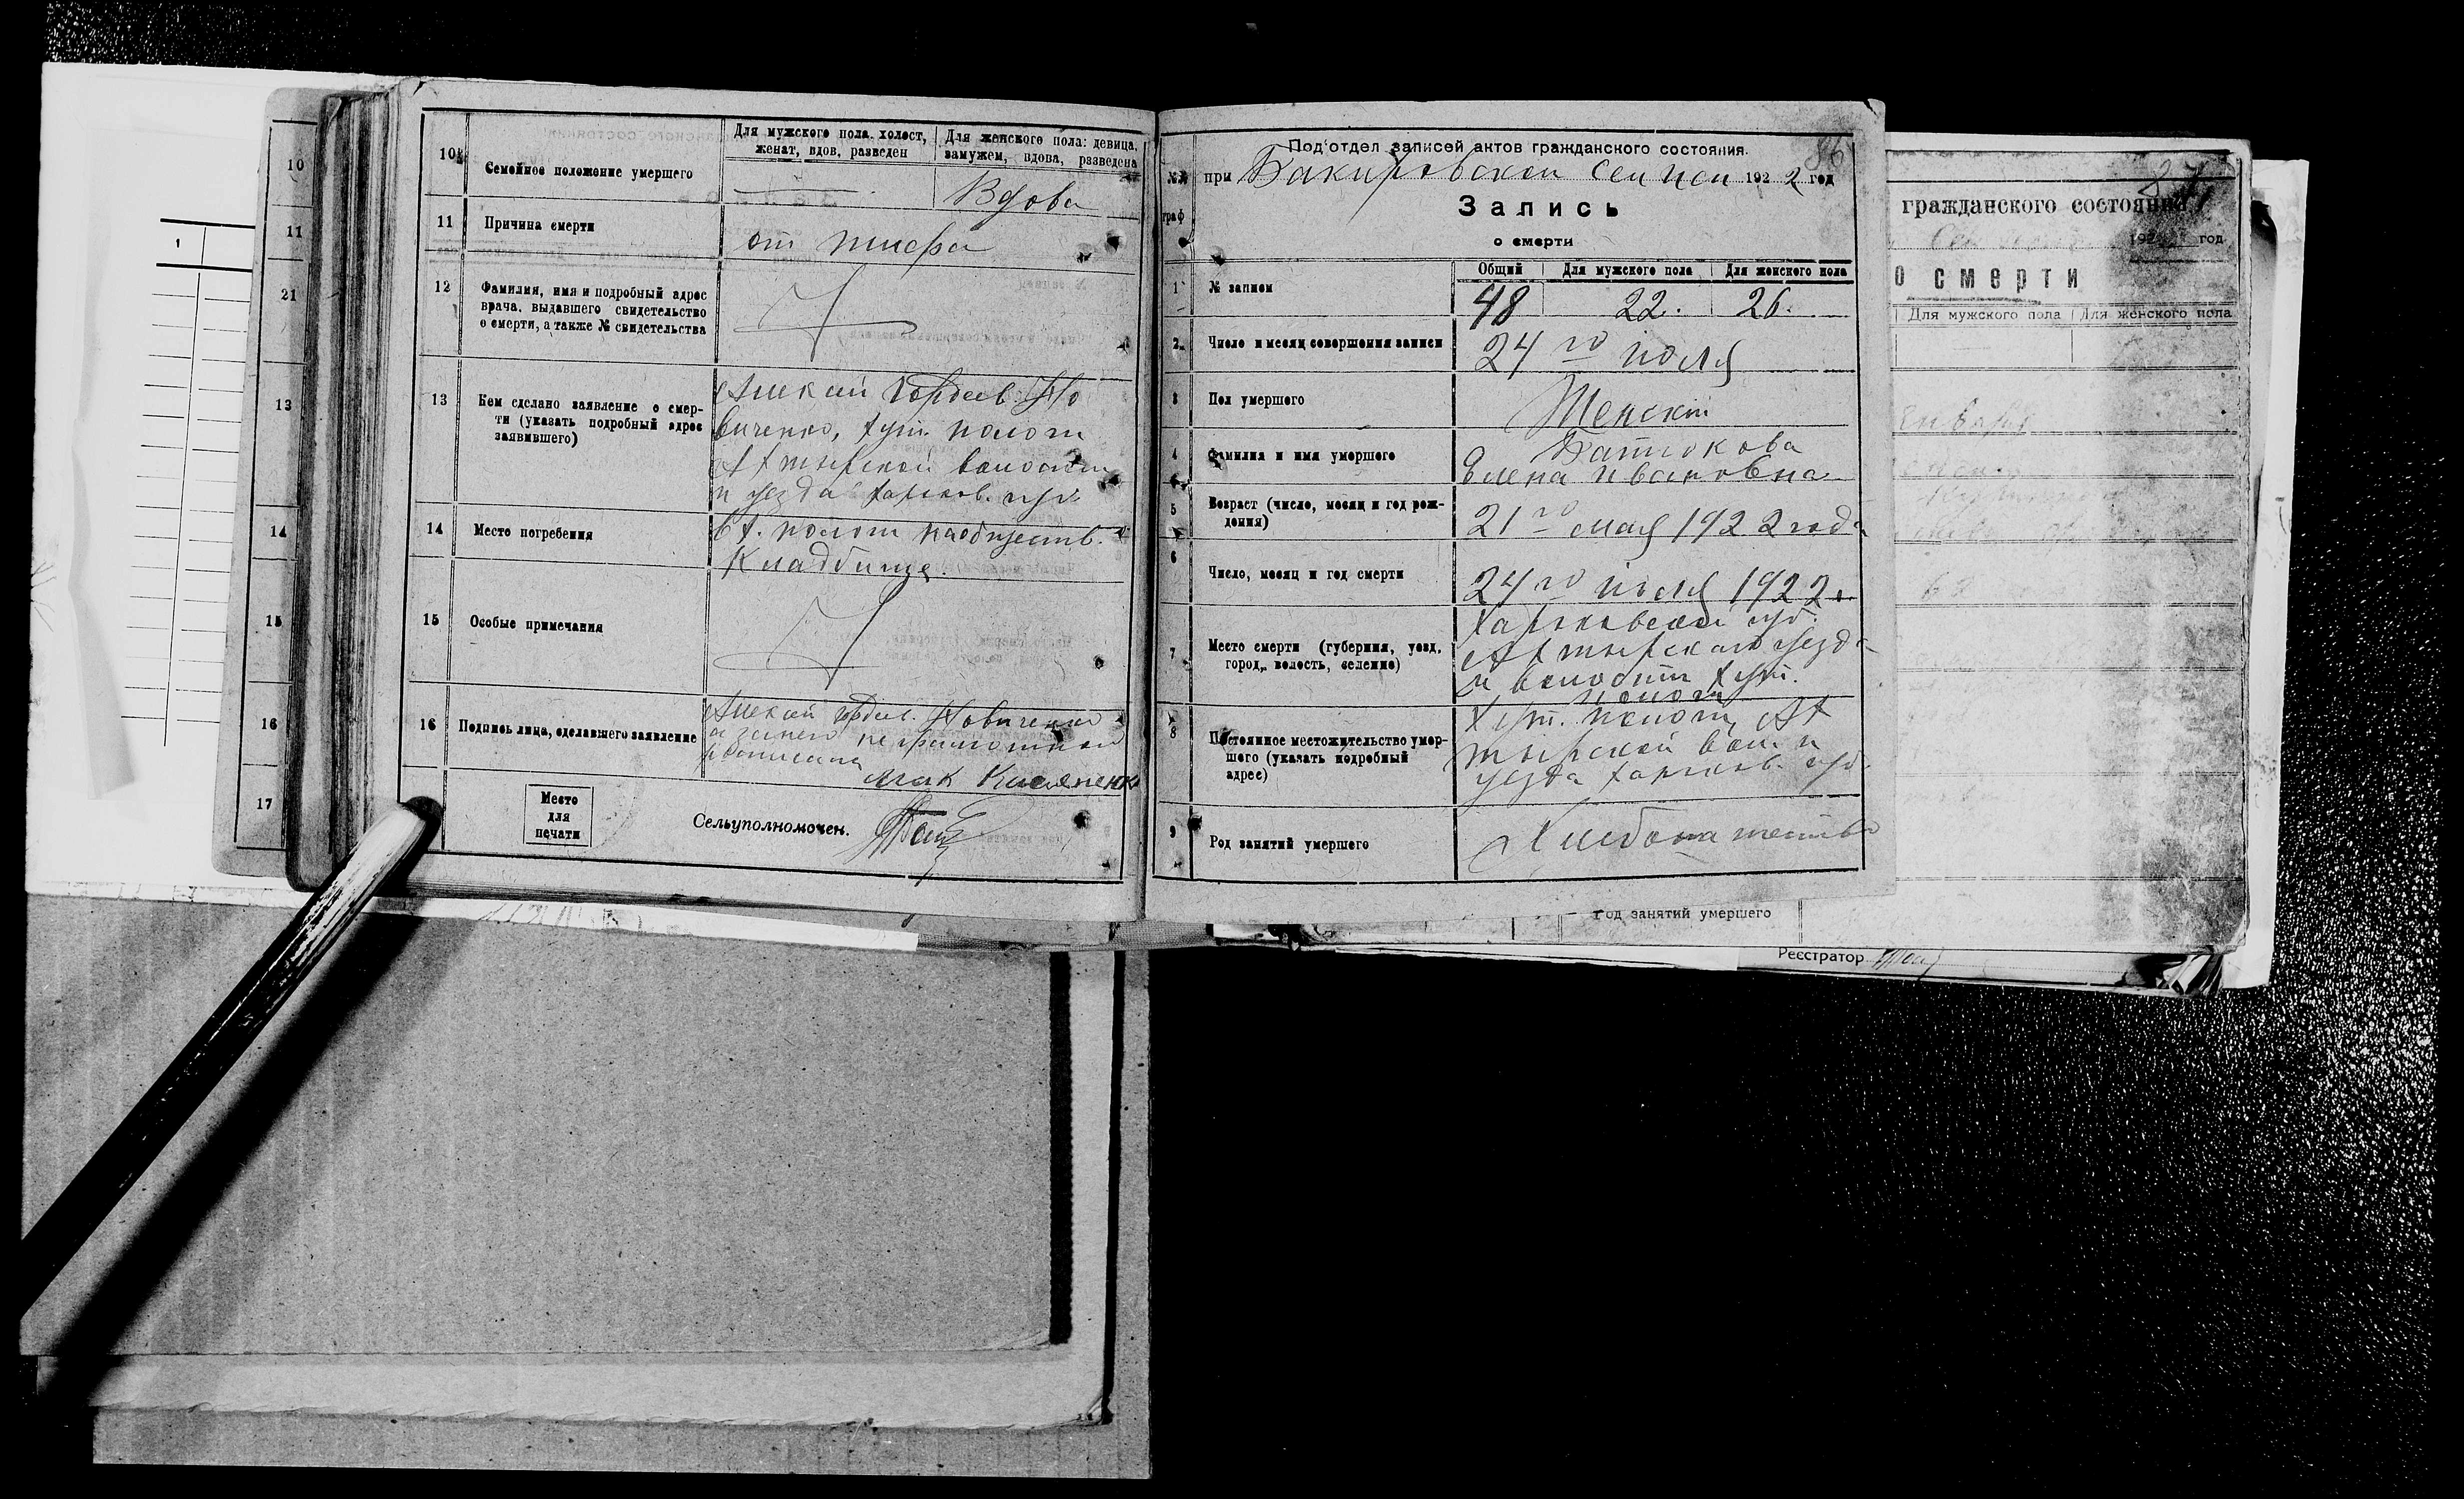 10
11
21
13
14
15
16
17
1
10
Семейное положение умершего
Для мужского пола. холост, женат, вдов, разведен
Для женского пола: девица, замужем, вдова, разведена
Вдова
11
Причина смерти
от тифа
12
Фамилия, имя и подробный адрес
врача, выдавшего свидетельство
о смерти, а также № свидетельства
13
Кем сделано заявление о смер-
ти (указать подробный адрес
заявившего)
Алекей Гордеев. Но
виченко, хут. полот
Ахтырской волости
и уезда харьков. губ
14
Место погребения
в х. полот наобществ.
Кладбище.
15
Особые примечания
16
Подпись лица, сделавшего заявление
Алекей Гордеев. Новиченко
а занего не грамотного
росписался
Место
для
печати
Сельуполномочен.
86
Под'отдел записей актов гражданского состояния.
№№
граф
при Бакировской Сел 1922 год
Запись
о смерти
Общий | Для мужского пола | Для женского пола
1
№ записи
48 22. 26.
2
Число и месяц совершения записи
24 го июля
3
Пол умершего
Женский
4
Фамилия и имя умершего
Елена Ивановна
5
Возраст (число, месяц и год рож-
дения)
21 го мая 1922 года
6
Число, месяц и год смерти
24 го июля 1922 г.
7
Место смерти (губерния, уезд,
город, волость, селение)
Харьковской губ.
Ахтырского уезда
и волости хут.
полот
8
Постоянное местожительство умер-
шего (указать подробный
адрес)
Хут. полот, Ах
тырской вол. и
уезда харьков. губ.
9
Род занятий умершего
Хлебопашество
87
гражданского состояния
192 год
о смерти
Для мужского пола | Для женского пола
Января
Род занятий умершего
Реестратор